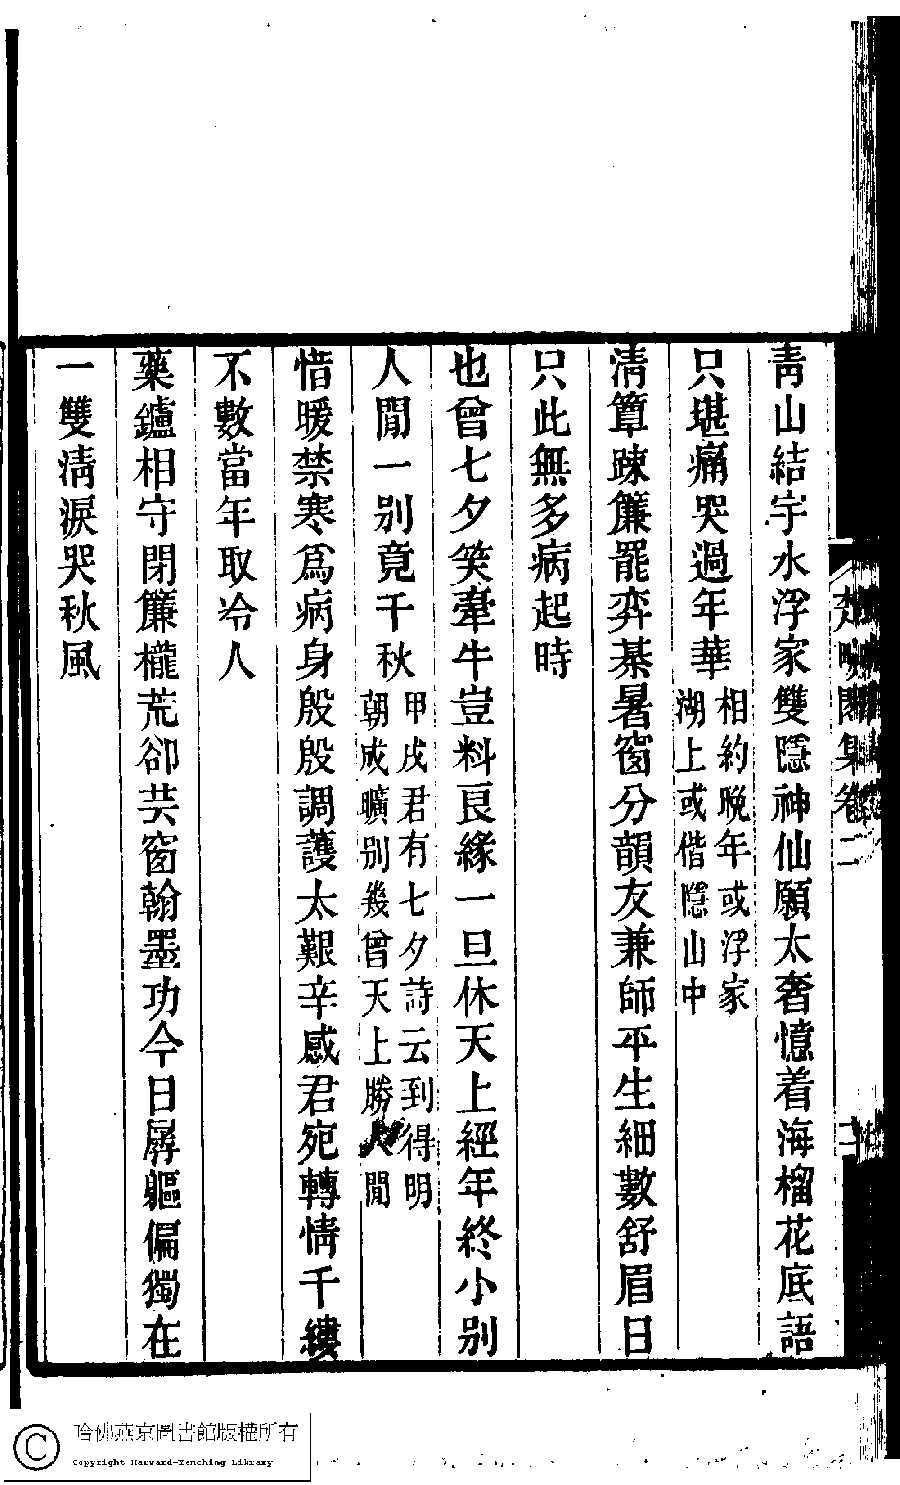 青山結宇水浮家雙隱神仙願太奢憶着海榴花底語
只堪痛哭過年華相約晚年或浮家
湖上或偕隱山中
清簟疎簾罷弈棊暑窗分韻友兼師平生細數舒眉日
只此無多病起時
也曾七夕笑牽牛豈料良緣一旦休天上經年終小别
人閒一别竟千秋甲戌君有七夕詩云到得明
朝成曠别幾曾天上勝人閒
惜暖禁寒爲病身殷殷調護太艱辛感君宛轉情千縷
不數當年取冷人
藥鑪相守閉簾櫳荒卻共窗翰墨功今日孱軀偏獨在
一雙清淚哭秋風
哈佛燕京圖書館版權所有
Copyright Harvard-Yenching Library